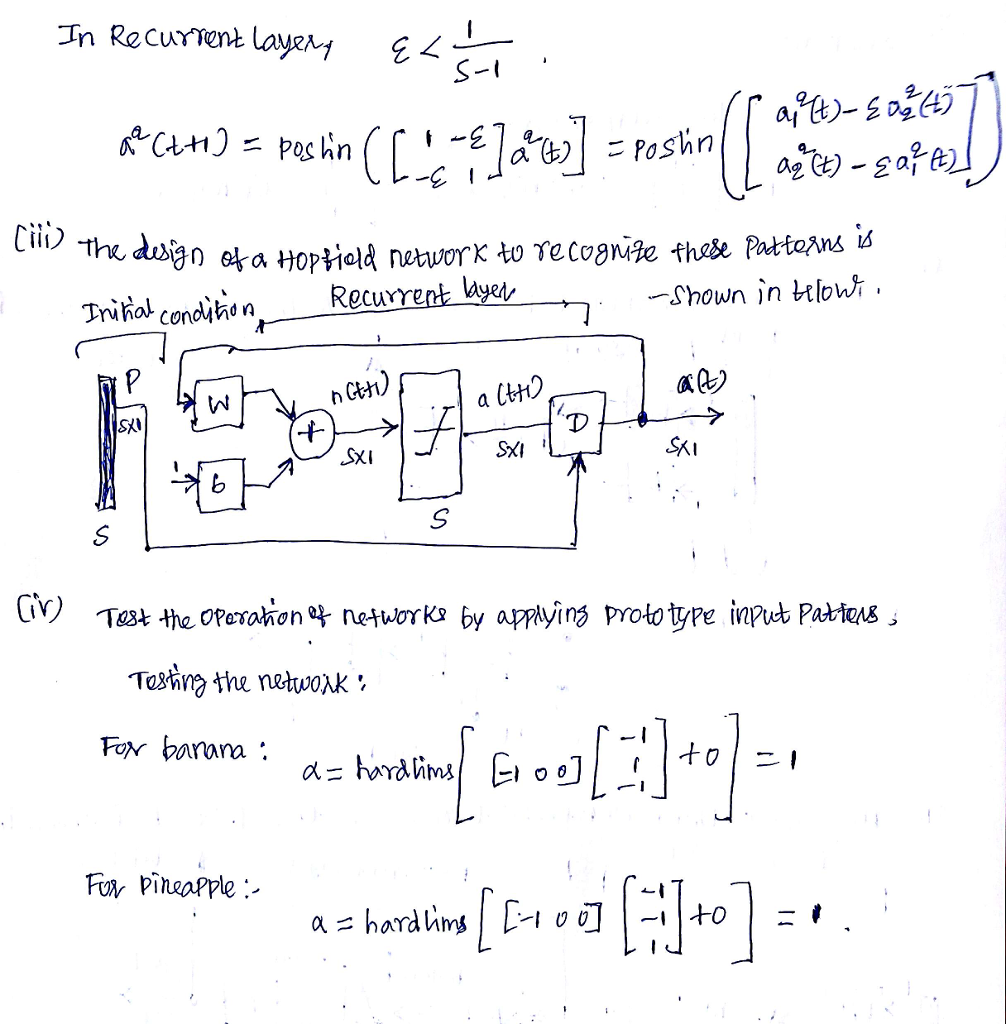 In Recurrent layer, ε < 1/(S-1) .
a²(t+1) = poslin ([1 -ε; -ε 1] a²(t)] = poslin ([a₁²(t) - ε a₂²(t); a₂²(t) - ε a₁²(t)])
(iii) The design of a Hopfield network to recognize these Patterns is
Initial condition Recurrent layer - shown in below.
P SX1 S
W b 1 + n(t+1) SX1 S a(t+1) SX1 D a(t) SX1
(iv) Test the operation of networks by applying prototype input Pattens ;
Testing the network :
For banana : a = hardlims [ [-1 0 0] [-1; 1; -1] + 0 ] = 1
For Pineapple :- a = hardlims [ [-1 0 0] [-1; -1; 1] + 0 ] = 1 .